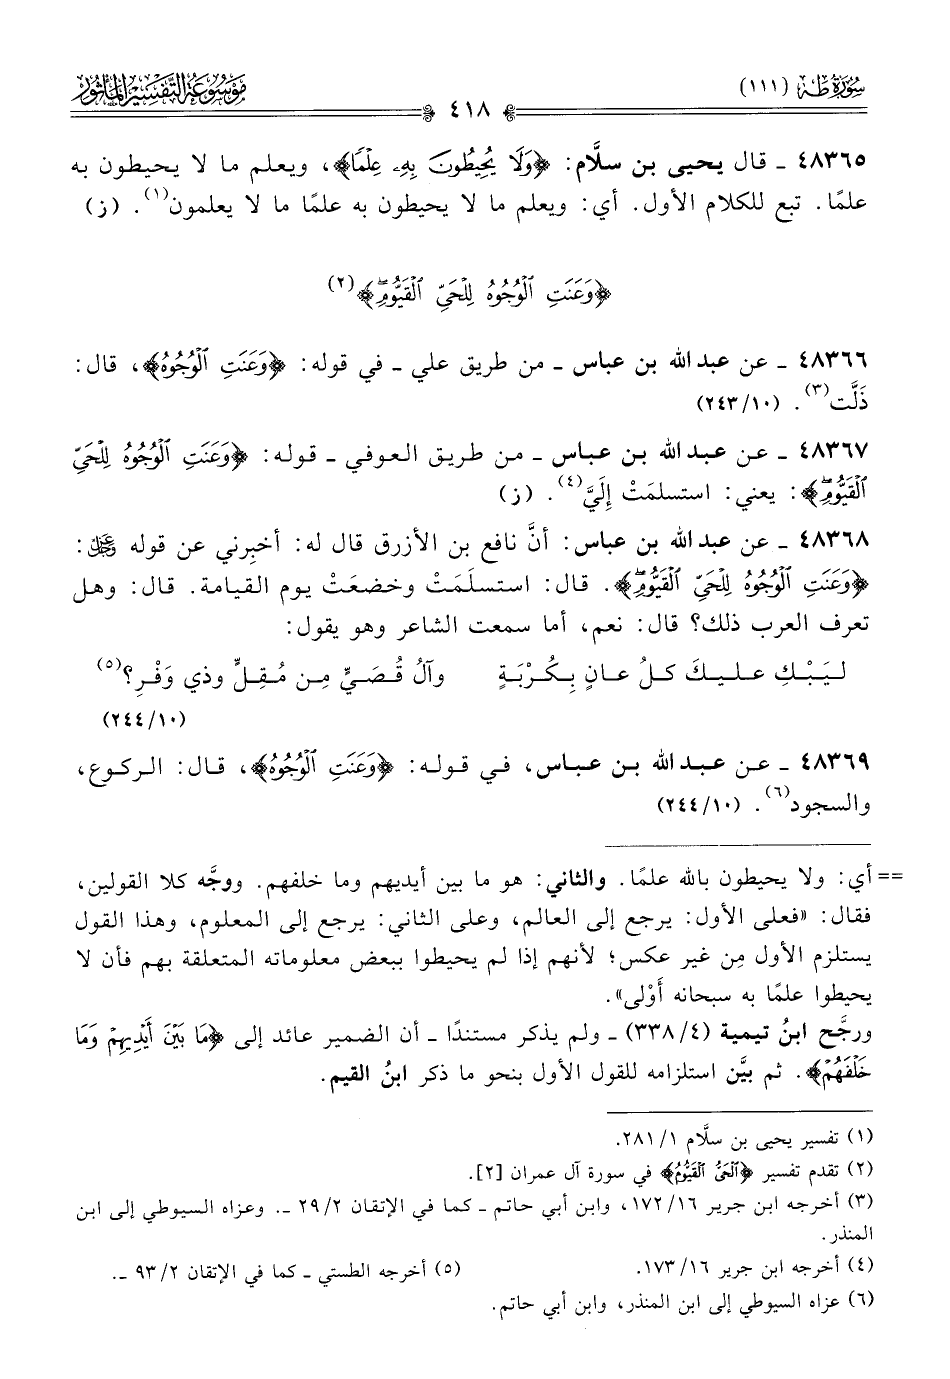 سُورَةُ طه (١١١)
٤١٨
موسوعة التفسير المأثور
٤٨٣٦٥ ـ قال يحيى بن سلَّام: ﴿وَلَا يُحِيطُونَ بِهِۦ عِلْمًا﴾، ويعلم ما لا يحيطون به
علمًا. تبع للكلام الأول. أي: ويعلم ما لا يحيطون به علمًا ما لا يعلمون(١). (ز)
﴿وَعَنَتِ ٱلْوُجُوهُ لِلْحَىِّ ٱلْقَيُّومِۖ﴾(٢)
٤٨٣٦٦ ـ عن عبد الله بن عباس ـ من طريق علي ـ في قوله: ﴿وَعَنَتِ ٱلْوُجُوهُ﴾، قال:
ذَلَّت(٣). (١٠/ ٢٤٣)
٤٨٣٦٧ ـ عن عبد الله بن عباس ـ من طريق العوفي ـ قوله: ﴿وَعَنَتِ ٱلْوُجُوهُ لِلْحَىِّ
ٱلْقَيُّومِۖ﴾: يعني: استسلمَتْ إِلَيَّ(٤). (ز)
٤٨٣٦٨ ـ عن عبد الله بن عباس: أنَّ نافع بن الأزرق قال له: أخبِرني عن قوله ﷿:
﴿وَعَنَتِ ٱلْوُجُوهُ لِلْحَىِّ ٱلْقَيُّومِۖ﴾. قال: استسلَمَتْ وخضعَتْ يوم القيامة. قال: وهل
تعرف العرب ذلك؟ قال: نعم، أما سمعت الشاعر وهو يقول:
لـيَـبْـكِ عـلـيـكَ كـلُّ عـانٍ بِـكُـرْبَـةٍ وآلُ قُـصَـيٍّ مِـن مُـقِـلٍّ وذي وَفْـرِ؟(٥)
(١٠/ ٢٤٤)
٤٨٣٦٩ ـ عن عبد الله بن عباس، في قوله: ﴿وَعَنَتِ ٱلْوُجُوهُ﴾، قال: الركوع،
والسجود(٦). (١٠/ ٢٤٤)
== أي: ولا يحيطون بالله علمًا. والثاني: هو ما بين أيديهم وما خلفهم. ووجَّه كلا القولين،
فقال: «فعلى الأول: يرجع إلى العالم، وعلى الثاني: يرجع إلى المعلوم، وهذا القول
يستلزم الأول مِن غير عكس؛ لأنهم إذا لم يحيطوا ببعض معلوماته المتعلقة بهم فأن لا
يحيطوا علمًا به سبحانه أَوْلى».
ورجَّح ابنُ تيمية (٤/ ٣٣٨) ـ ولم يذكر مستندًا ـ أن الضمير عائد إلى ﴿مَا بَيْنَ أَيْدِيهِمْ وَمَا
خَلْفَهُمْ﴾. ثم بيَّن استلزامه للقول الأول بنحو ما ذكر ابنُ القيم.
(١) تفسير يحيى بن سلَّام ١/ ٢٨١.
(٢) تقدم تفسير ﴿ٱلْحَىُّ ٱلْقَيُّومُ﴾ في سورة آل عمران [٢].
(٣) أخرجه ابن جرير ١٦/ ١٧٢، وابن أبي حاتم ـ كما في الإتقان ٢/ ٢٩ ـ. وعزاه السيوطي إلى ابن
المنذر.
(٤) أخرجه ابن جرير ١٦/ ١٧٣. (٥) أخرجه الطستي ـ كما في الإتقان ٢/ ٩٣ ـ.
(٦) عزاه السيوطي إلى ابن المنذر، وابن أبي حاتم.